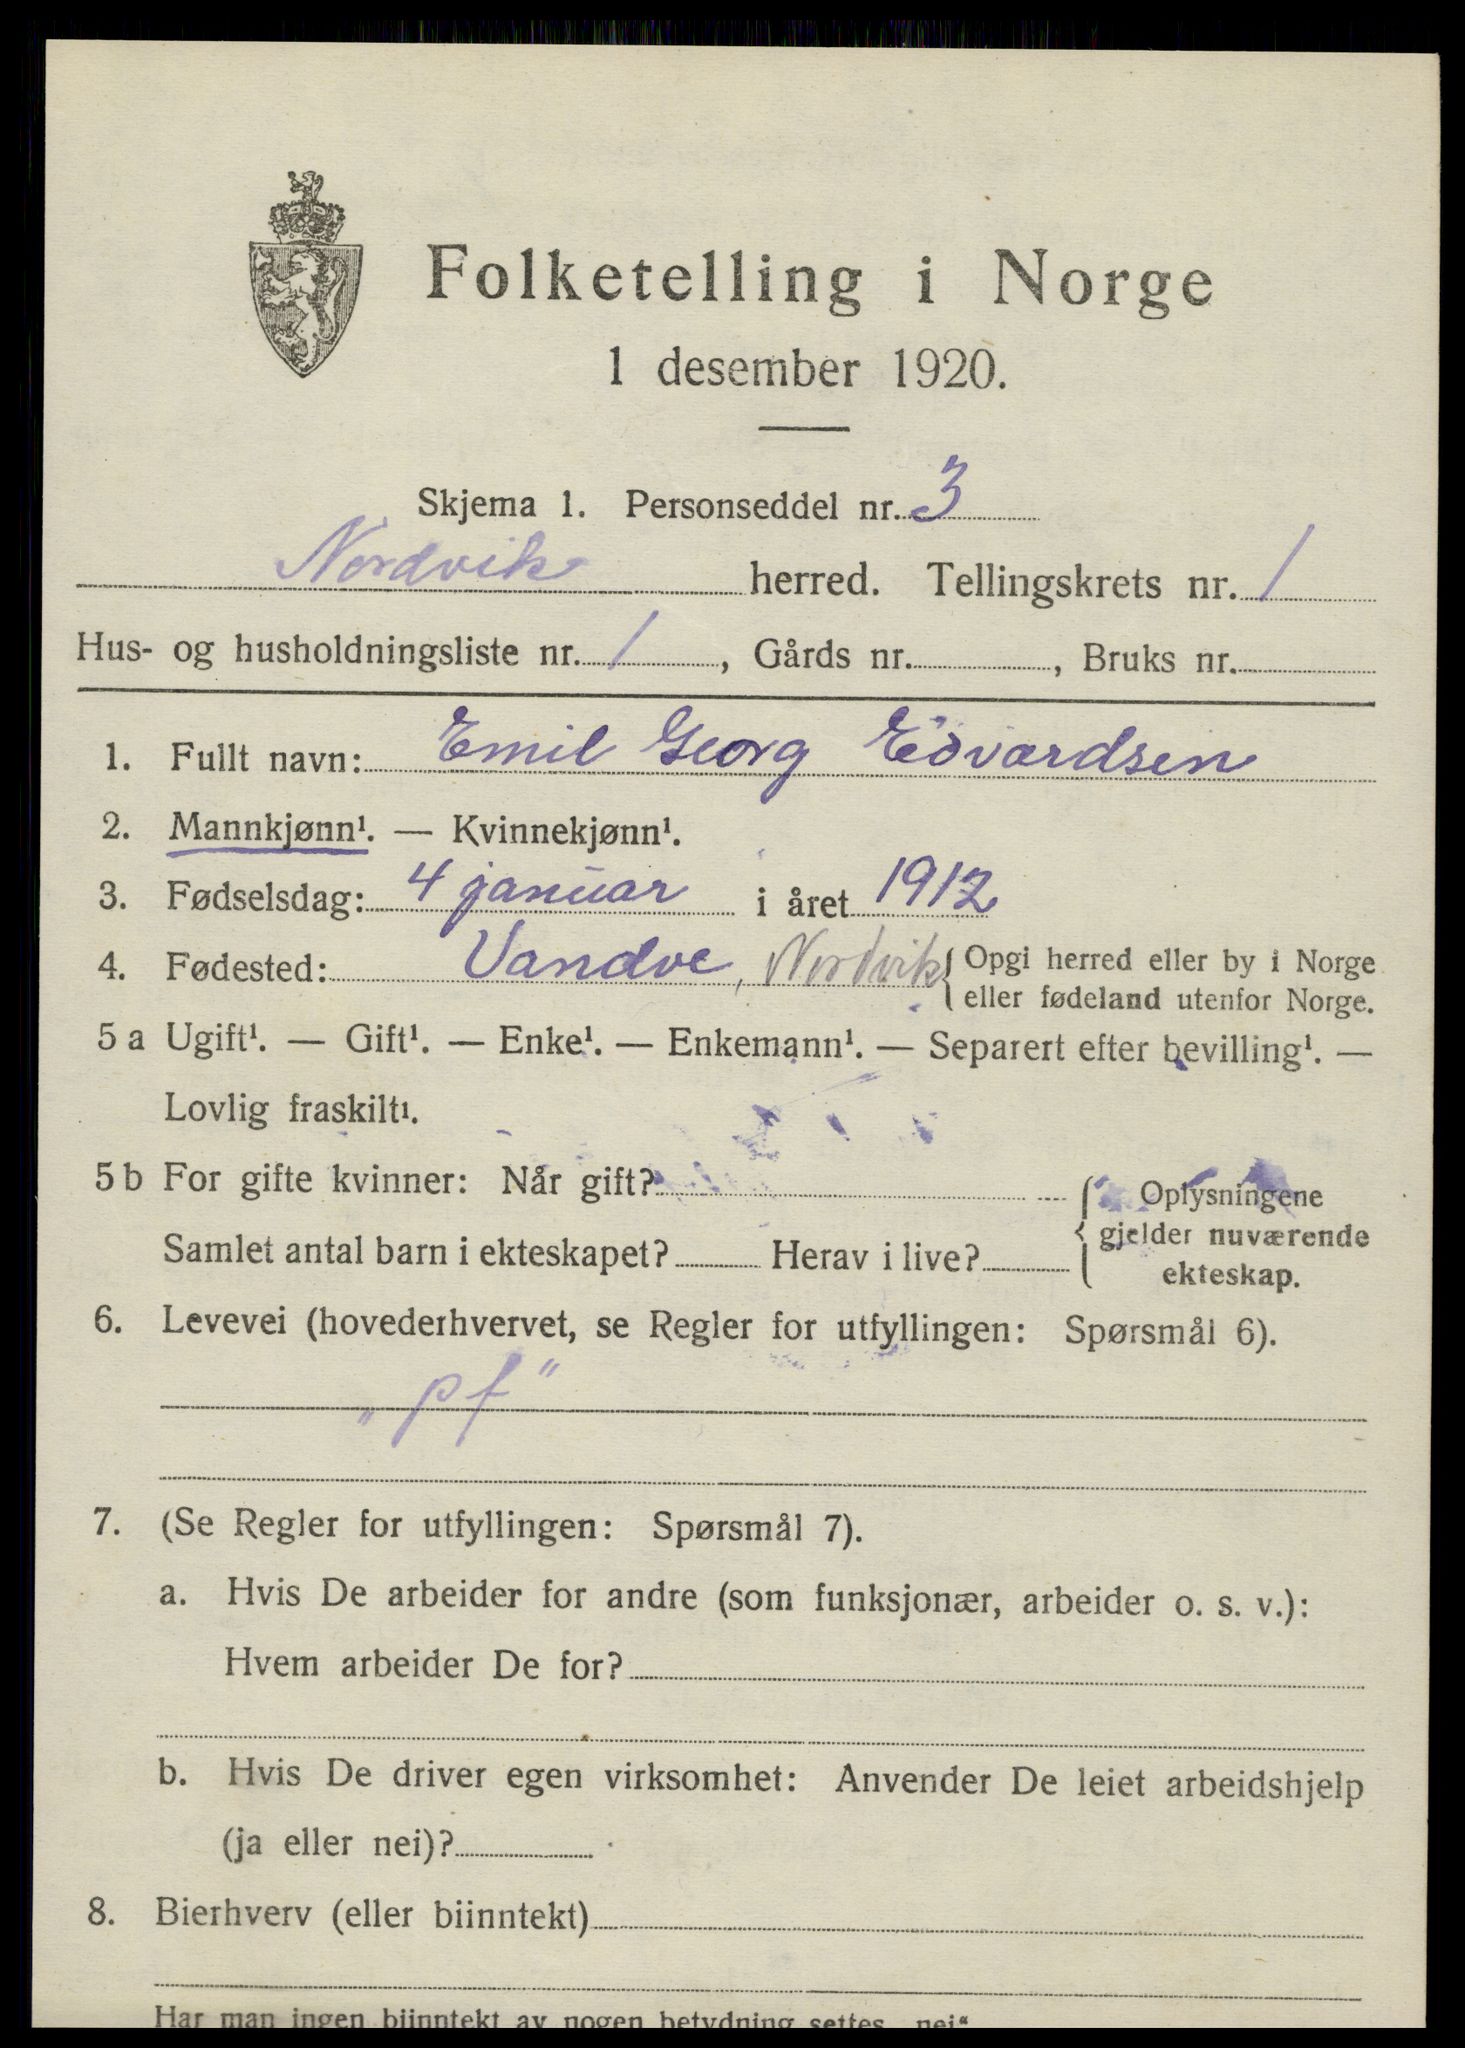 Folketelling i Norge
1 desember 1920.
Skjema 1. Personseddel nr. 3
Nordvik herred. Tellingskrets nr. 1
Hus- og husholdningsliste nr. 1, Gårds nr. , Bruks nr.
1. Fullt navn: Emil Georg Edvardsen
2. Mannkjønn¹. — Kvinnekjønn¹.
3. Fødselsdag: 4 januar i året 1912
4. Fødested: Vandve, Nordvik { Opgi herred eller by i Norge
eller fødeland utenfor Norge.
5 a Ugift¹. — Gift¹. — Enke¹. — Enkemann¹. — Separert efter bevilling¹. —
Lovlig fraskilt¹.
5 b For gifte kvinner: Når gift?
Samlet antal barn i ekteskapet? Herav i live?
{ Oplysningene
gjelder nuværende
ekteskap.
6. Levevei (hovederhvervet, se Regler for utfyllingen: Spørsmål 6).
„pf"
7. (Se Regler for utfyllingen: Spørsmål 7).
a. Hvis De arbeider for andre (som funksjonær, arbeider o. s. v.):
Hvem arbeider De for?
b. Hvis De driver egen virksomhet: Anvender De leiet arbeidshjelp
(ja eller nei)?
8. Bierhverv (eller biinntekt)
Har man ingen biinntekt av nogen betydning settes „nei"